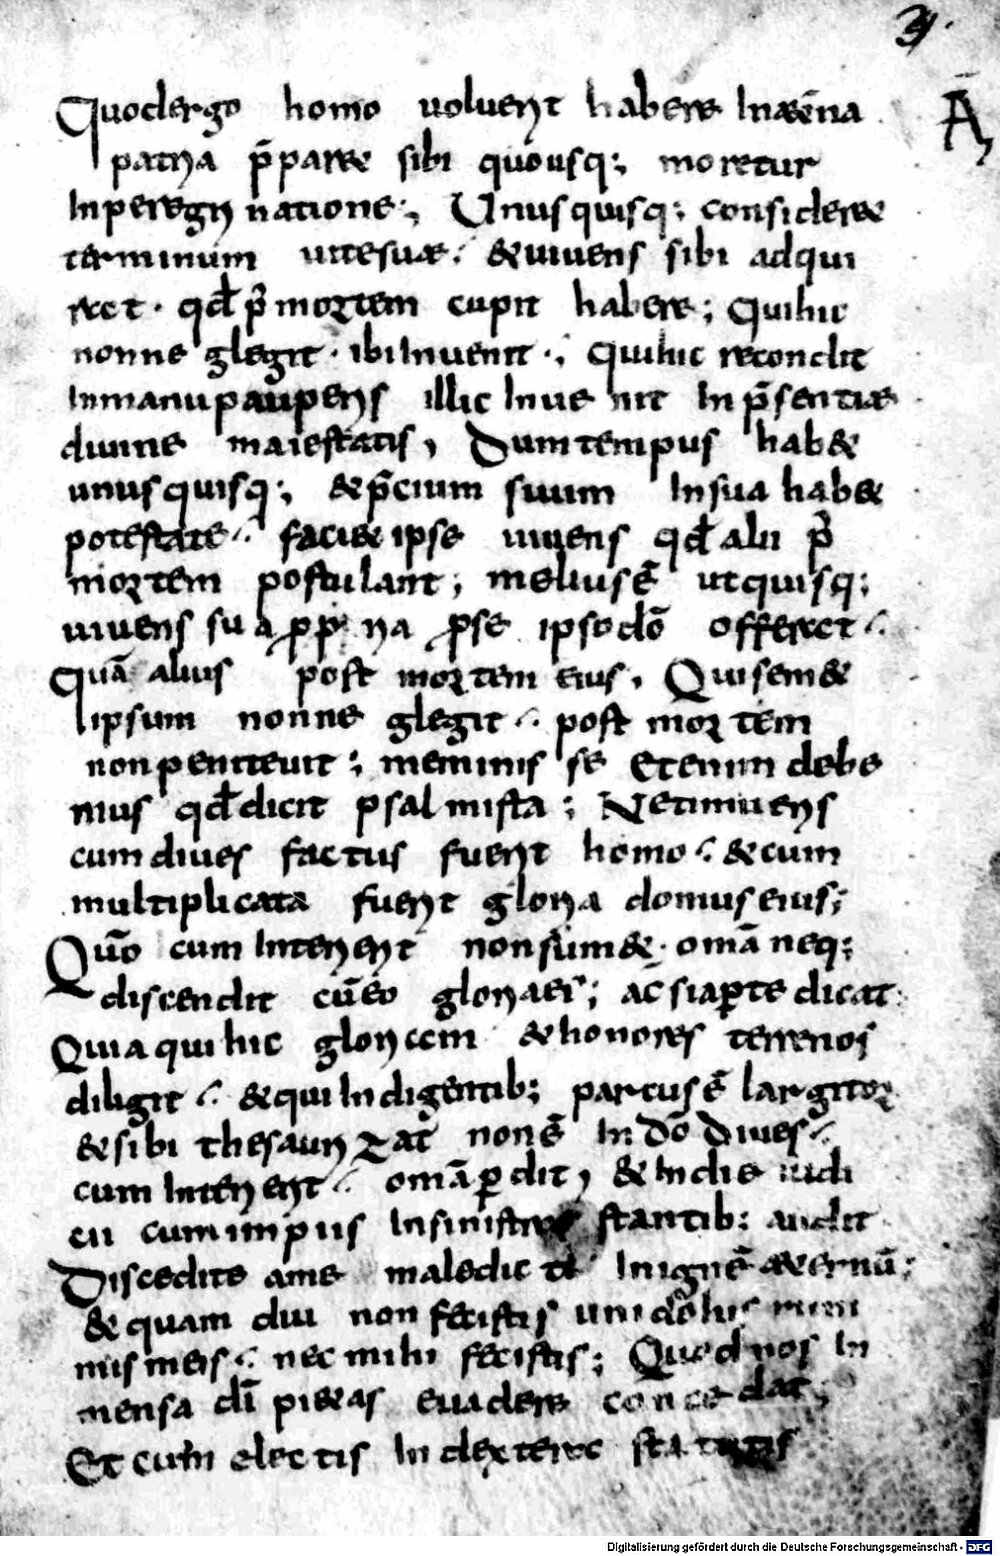 34.
Quodergo homo voluerit habere In aet̄na
A
patria p̄parae sibi quousq; moretur
Inperegrinatione; Unusquisq; considerae
terminum vitesuae: &vivens sibi adqui
raet· qđ p̄ mortem cupit habere; Quihic
nonne glegit· ibi Invenit·; Quihic recondit
Inmanupauperis illic Invenit Inp̄sentiae
divine maiestatis, Dumtempus hab&
unusquisq; &p̄cium suum Insua hab&
potestate· faci& ipse vivens qđ alii p̄
mortem postulant; meliusē utquisq;
vivens sua ppria pse ipsodō offeret·
Quā alius post mortem eius, Quisem&
ipsum nonne glegit· post mortem
nonpenitevit; meminisse Etenim debe
mus qđdicit psalmista; Netimueris
cum dives factus fuerit homo· &cum
multiplicata fuerit gloria domus eius;
Quō cum Interierit nonsum& omā neq;
discendit cūeo gloriaei'; ac̄siaperte dicat
Quiaquihic gloriam &honores terrenos
diligit· &quiIndigentib; parcusē largitor
&sibi thesaurizat nonē In dō Dives·
cum Interierit· omā pdit, &Indie iudi
cii cumimpiis Insinistra stantib; audit
Discedite ame maledicti Inignē aeternū;
&quamdiu non fecistis uni dehis mini
mis meis· nec mihi fecistis; Quodnos In
mensa dī pi&as evadere concedat;
Et cum electis Indextera
Digitalisierung gefördert durch die Deutsche Forschungsgemeinschaft - DFG